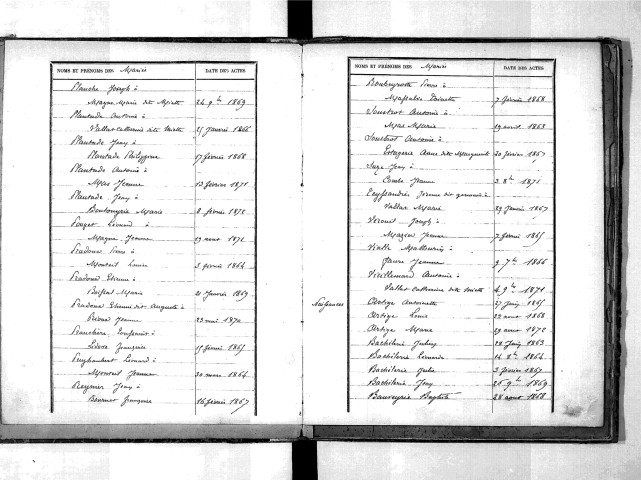 NOMS ET PRÉNOMS DES Mariés DATE DES ACTES
Planche Joseph à
Magne Marie dite Miette 24 9bre 1869
Plantade Antoine à
Vallat Catherine dite Miette 25 Janvier 1866
Plantade Jean à
Plantade Philippine 17 février 1868
Plantade Antoine à
Mas Jeanne 13 février 1871
Plantade Jean à
Bouteyrie Marie 8 février 1875
Pouget Léonard à
Magne Jeanne 29 aout 1872
Pradoux Pierre à
Monteil Louise 3 février 1864
Pradoux Etienne à
Marie 21 Janvier 1869
Pradoux Etienne dit Auguste à
Jeanne 23 mai 1870
Toussaint à
Françoise 15 février 1865
Puyhaubert Léonard à
Monteil Jeanne 30 mars 1864
Reynier Jean à
Françoise 16 février 1867
NOMS ET PRÉNOMS DES Mariés DATE DES ACTES
Pierre à
Toinette 7 février 1868
Antoine à
Mas Marie 29 avril 1863
Antoine à
Anne dite Marguerite 20 février 1867
Suze Jean à
Combe Jeanne 3 8bre 1871
Teyssandier
Vallat Marie 29 Janvier 1867
Joseph à
Jeanne 7 février 1865
Vialle Mathurin à
Faure Jeanne 9 7bre 1866
Vieillemard Antoine à
Vallat Catherine dite Miette 4 9bre 1871
Naissances
Artige Antoinette 27 Juin 1865
Artige Louis 22 aout 1868
Artige Marie 29 aout 1872
Bachelerie 28 Juin 1863
Bachelerie 14 8bre 1864
Bachelerie Julie 3 février 1867
Bachelerie Jean 26 9bre 1869
Baptiste 28 aout 1868